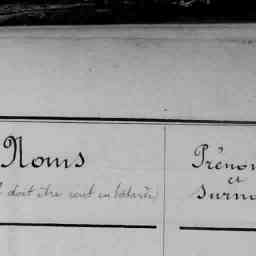 Noms
doit être écrit en bâtarde)
Prénom
et
Surno